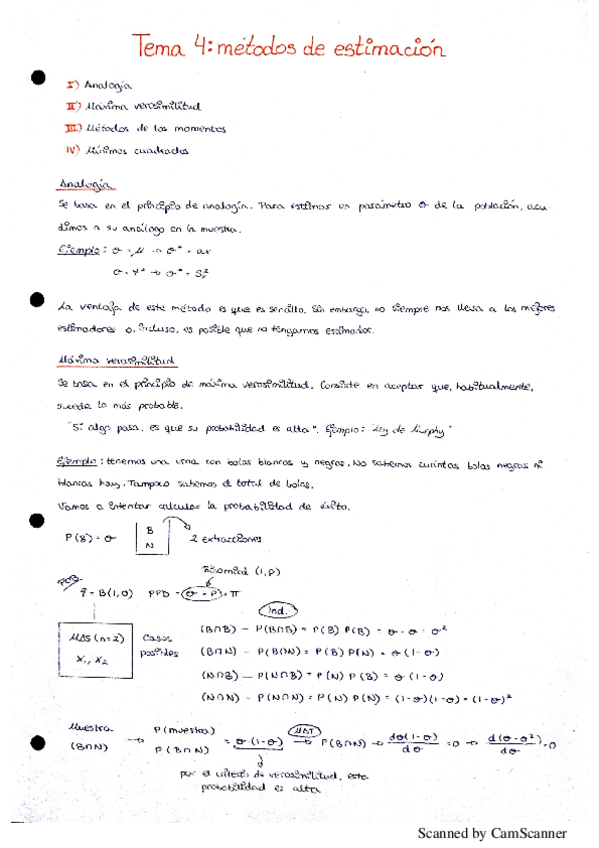 Tema 4: métodos de estimación
I) Analogía
II) Máxima verosimilitud
III) Métodos de los momentos
IV) Mínimos cuadrados
Analogía
Se basa en el principio de analogía. Para estimar un parámetro θ de la población, acu-
dimos a su análogo en la muestra.
Ejemplo: θ = μ → θ* =
θ =
La ventaja de este método es que es sencillo. Sin embargo, no siempre nos lleva a los mejores
estimadores o, incluso, es posible que no tengamos estimador.
Máxima verosimilitud
Se basa en el principio de máxima verosimilitud. Consiste en aceptar que, habitualmente,
sucede lo más probable.
"Si algo pasa, es que su probabilidad es alta". Ejemplo: "Ley de Murphy"
Ejemplo: tenemos una urna con bolas blancas y negras. No sabemos cuántas bolas negras ni
blancas hay. Tampoco sabemos el total de bolas.
Vamos a intentar calcular la probabilidad de éxito.
P(B) = θ B N 2 extracciones
Binomial (1,P)
POB. B(1,θ) PPD = θ = P = π
Ind.
MAS (n=2) X₁, X₂
Casos posibles
(B∩B) – P(B∩B) = P(B) P(B) = θ · θ = θ²
(B∩N) – P(B∩N) = P(B) P(N) = θ(1-θ)
(N∩B) – P(N∩B) = P(N) P(B) = θ(1-θ)
(N∩N) – P(N∩N) = P(N) P(N) = (1-θ)(1-θ) = (1-θ)²
Muestra (B∩N) → P(muestra) P(B∩N) = θ(1-θ) → P(B∩N) → dθ(1-θ)/dθ = 0 → d(θ-θ²)/dθ = 0
por el criterio de verosimilitud, esta
probabilidad es alta
Scanned by CamScanner